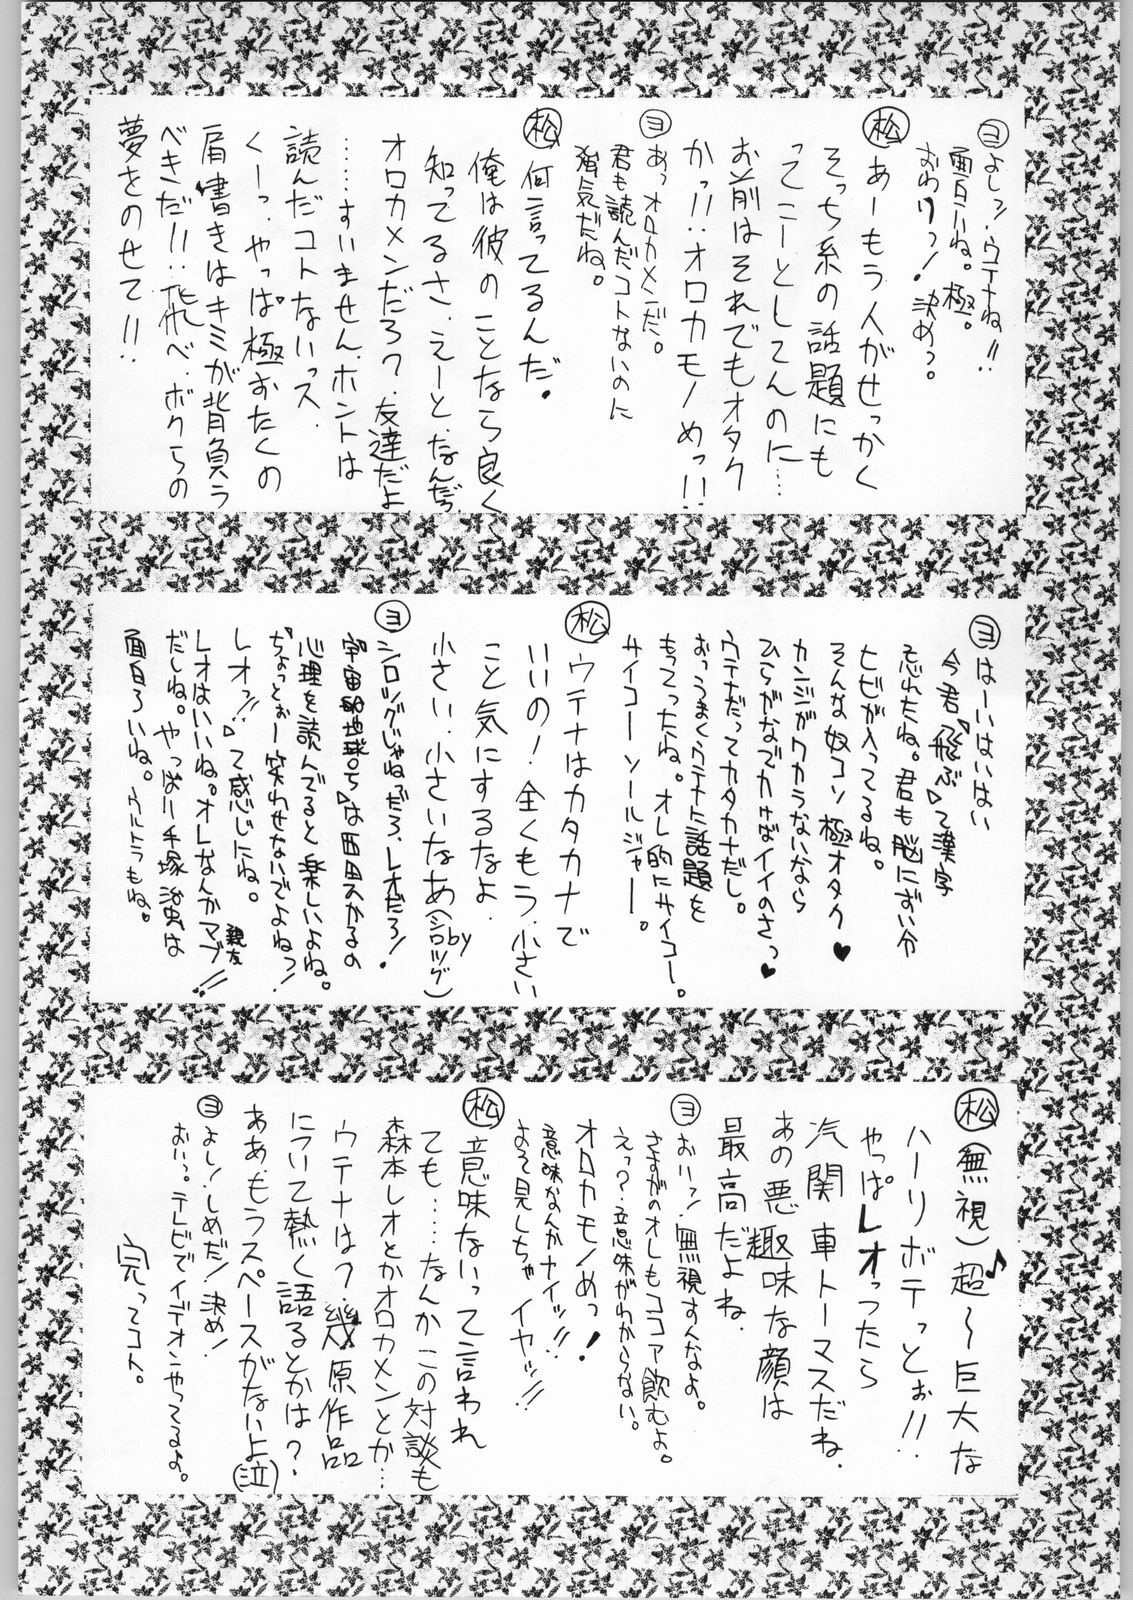 ヨ よしッ!ウテナね!!
面白いね。極。
おわりっ!決めっ。
松 あーもう人がせっかく
そっち系の話題にも
ってこーとしてんのに…
お前はそれでもオタク
かっ!!オロカモノめっ!!
ヨ あっオロカメンだ。
君も読んだコトないのに
強気だね。
松 何言ってるんだ。
俺は彼のことなら良く
知ってるさ.えーと.なんだっ
オロカメンだろ?.友達だよ
……すいません.ホントは
読んだコトないっス.
くーっ.やっぱ極おたくの
肩書きはキミが背負う
べきだ!!..飛べ.ボクらの
夢をのせて!!.
ヨ はーいはいはい
今君『飛ぶ』て漢字
忘れたね。君も脳にずい分
ヒビが入ってるね。
そんな奴コソ極オタク♥
カンジがワカラないなら
ひらがなでカけばイイのさっ♥
ウテナだってカタカナだし。
おっうまくウテナに話題を
もってったね。オレ的にサイコー。
サイコーソールジャー。
松 ウテナはカタカナで
いいの!全くもう.小さい
こと気にするなよ.
小さい.小さいなあ(by シロッグ)
ヨ シロッグじゃねぇだろ、レオだろ!
『宇宙船地球号』は西田スかるの
心理を読んでると楽しいよね。
『ちょっとぉー笑わせないでよねっ!
レオッ!!』て感じにね。
レオはいいね。オレなんかマブ親友!!
だしね。やっぱ手塚治虫は
面白ろいね。ウルトラもね。
松 (無視)超〜♪巨大な
ハーリボテっとぉ!!.
やっぱレオっつたら
汽関車トーマスだね.
あの悪趣味な顔は
最高だよね.
ヨ おいッ!無視すんなよ。
さすがのオレもココア飲むよ。
えっ?意味がわからない。
オロカモノめっ!
意味なんかナイッ!!
よって見しちゃイヤッ!!
松 意味ないって言われ
ても……なんかこの対談も
森本レオとかオロカメンとか…
ウテナは?幾原作品
について熱く語るとかは?.
ああ.もうスペースがないよ(泣)
ヨ よし!しめだ!決め!
おいっ。テレビでイデオンやってるよ。
完ってコト。